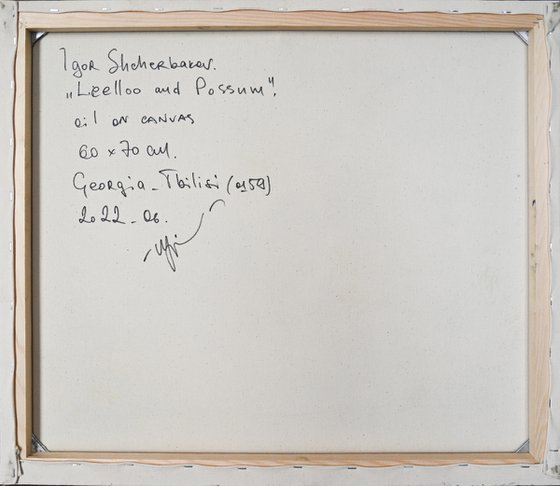 Igor Shcherbakov.
„Leelloo and Possum".
oil on canvas
60 x 70 cm.
Georgia - Tbilisi (0159)
2022 - 06.